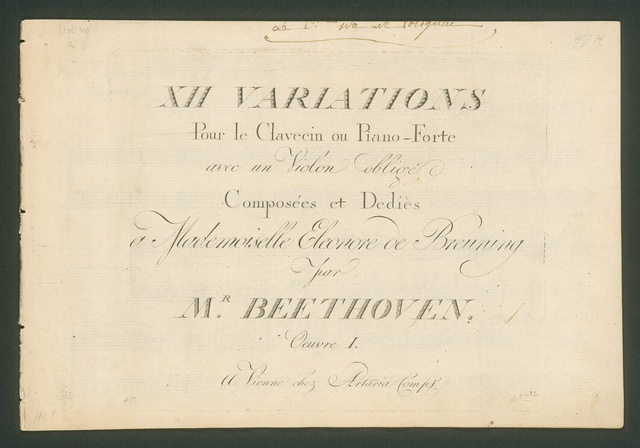 XII VARIATIONS
Pour le Clavecin ou Piano-Forte
avec un Violon obligé
Composées et Dediés
a Mademoiselle Eleonore de Breuning
par
M.R BEETHOVEN.
Oeuvre I.
A Vienne chez Artaria Comp.